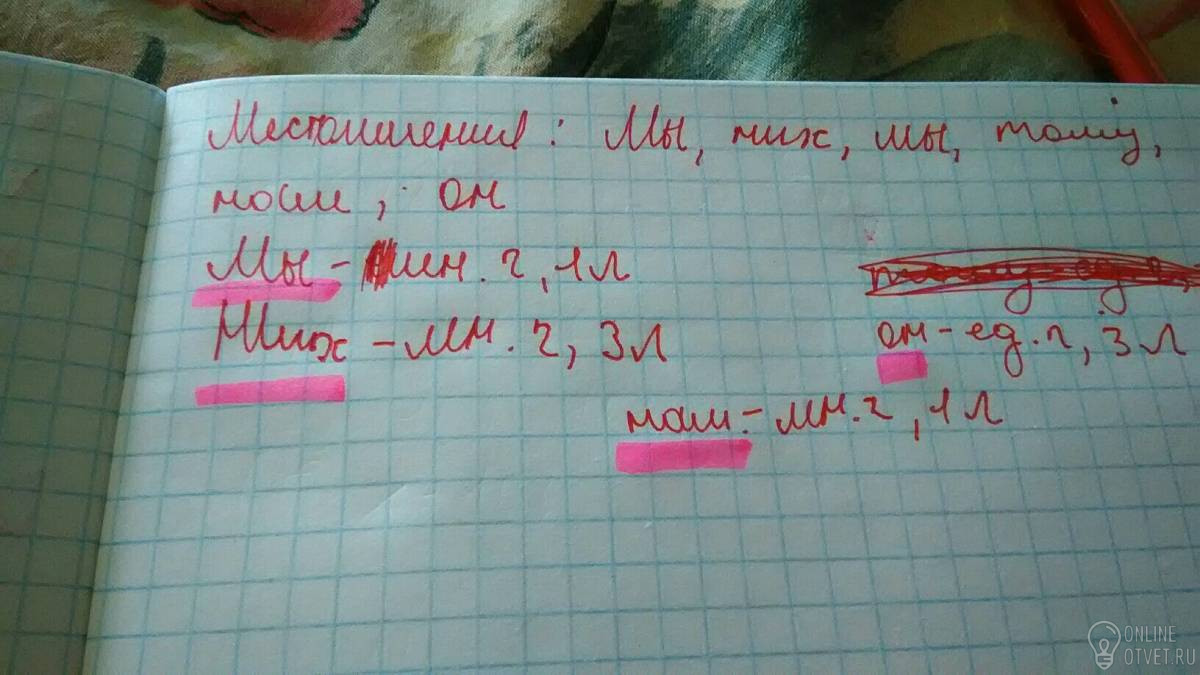 Местоимения: Мы, них, мы, тому,
нами, он
Мы - мн. ч, 1л
Них - мн. ч, 3л
он - ед. ч, 3л
нам - мн. ч, 1л
ONLINE
OTVET.RU